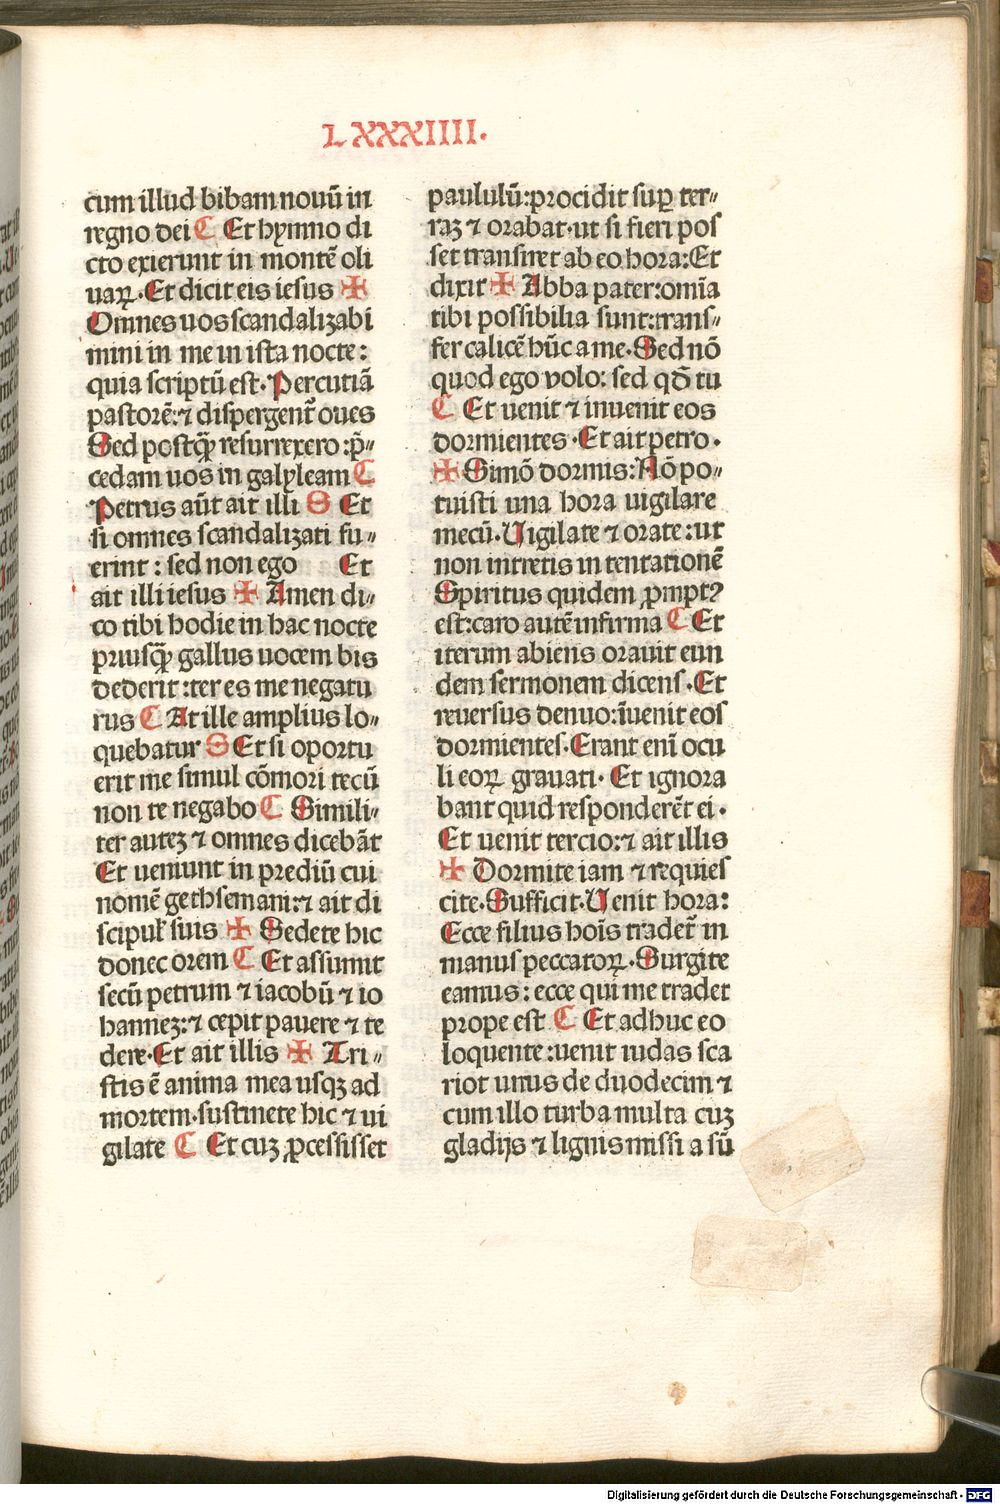 LXXXIIII.
cum illud bibam nouū in
regno dei C Et hymno di
cto exierunt in montē oli
uaꝝ. Et dicit eis iesus ✠
Omnes uos scandalizabi
mini in me in ista nocte:
quia scriptū est. Percutiā
pastorē: ⁊ dispergent̄ oues
Sed postqꝫ resurrexero: p̄⸗
cedam uos in galyleam C
Petrus aūt ait illi S Et
si omnes scandalizati fu⸗
erint: sed non ego Et
ait illi iesus ✠ Amen di⸗
co tibi hodie in hac nocte
priusqꝫ gallus uocem bis
dederit: ter es me negatu
rus C At ille amplius lo⸗
quebatur S Et si oportu
erit me simul cōmori tecū
non te negabo C Simili⸗
ter autez ⁊ omnes dicebāt
Et ueniunt in prediū cui
nomē gethsemani: ⁊ ait di
scipul' suis ✠ Sedete hic
donec orem C Et assumit
secū petrum ⁊ iacobū ⁊ io
hannez: ⁊ cepit pauere ⁊ te
dere. Et ait illis ✠ Tri⸗
stis ē anima mea usqꝫ ad
mortem. sustinete hic ⁊ ui
gilate C Et cuz ꝓcessisset
paululū: procidit suꝑ ter⸗
raz ⁊ orabat. ut si fieri pos
set transiret ab eo hora: Et
dixit ✠ Abba pater: omīa
tibi possibilia sunt: trans⸗
fer calicē hūc a me. Sed nō
quod ego volo: sed qd̄ tu
C Et uenit ⁊ inuenit eos
dormientes. Et ait petro.
✠ Simō dormis: Nō po⸗
tuisti una hora uigilare
mecū. Uigilate ⁊ orate: ut
non intretis in tentationē
Spiritus quidem ꝓmptꝰ
est: caro autē infirma C Et
iterum abiens orauit eun
dem sermonem dicens. Et
reuersus denuo: īuenit eos
dormientes. Erant enī ocu
li eoꝝ grauati. Et ignora
bant quid responderēt ei.
Et uenit tercio: ⁊ ait illis
✠ Dormite iam ⁊ requies
cite. Sufficit. Uenit hora:
Ecce filius hoīs tradet̄ in
manus peccatoꝝ. Surgite
eamus: ecce qui me tradet
prope est C Et adhuc eo
loquente: uenit iudas sca
riot unus de duodecim ⁊
cum illo turba multa cuz
gladijs ⁊ lignis missi a sū
Digitalisierung gefördert durch die Deutsche Forschungsgemeinschaft - DFG